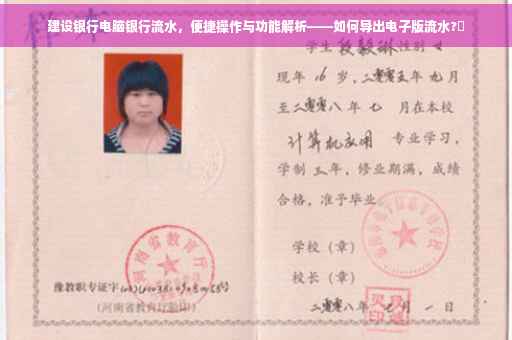 建设银行电脑银行流水，便捷操作与功能解析——如何导出电子版流水?
学生段毅琳性别女
现年16岁，二零零五年九月
至二零零八年七月在本校
计算机应用 专业学习，
学制三年，修业期满，成绩
合格，准予毕业。
学校（章）
校长（章）
二零零八年七月一日
河南省教育厅
豫教职专证字
（河南省教育厅验印）